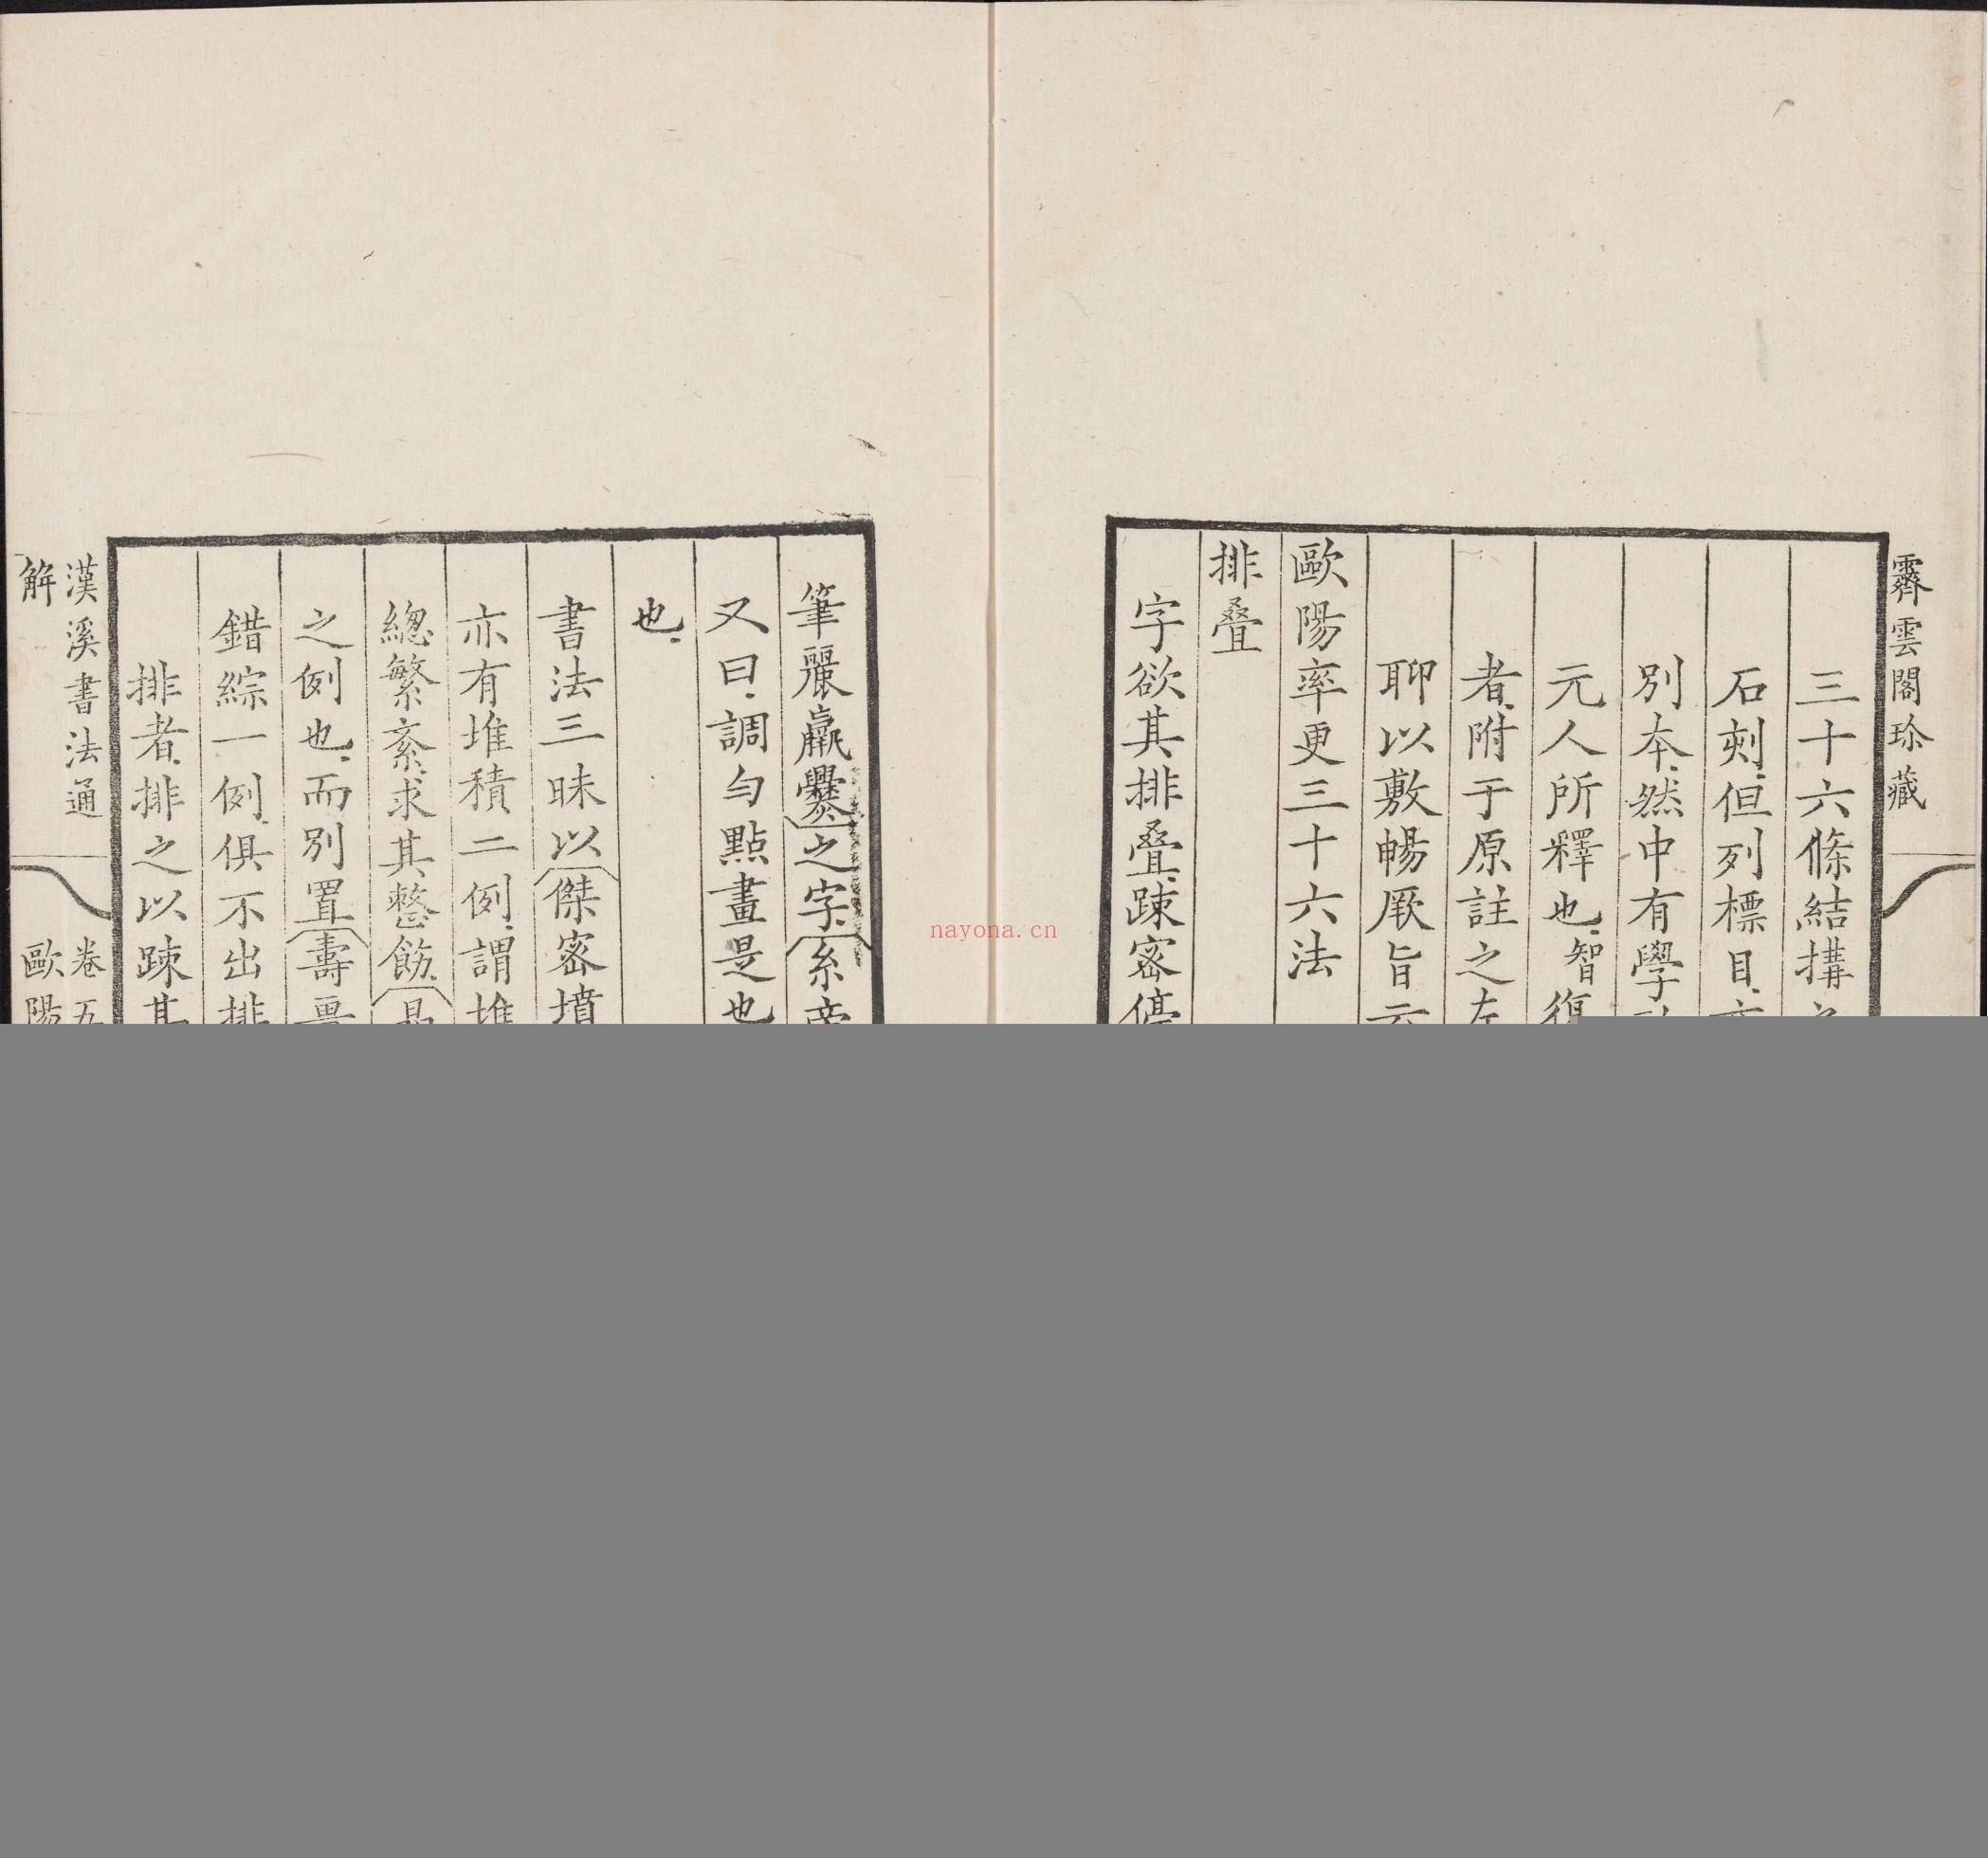 霽雲閣珍藏
三十六條結搆之
石刻但列標目亦
別本然中有學
元人所釋也智復
者附于原註之左
聊以敷暢厥旨云
歐陽率更三十六法
排叠
字欲其排叠疎密停
筆麗羸爨之字系帝
又曰調勻點畫是也
也
書法三昧以傑密墳
亦有堆積二例謂堆
總繁紊求其整飭晶
之例也而別置壽畺
錯綜一例俱不出排
排者排之以疎其
漢溪書法通
解
卷五
歐陽
nayona.cn